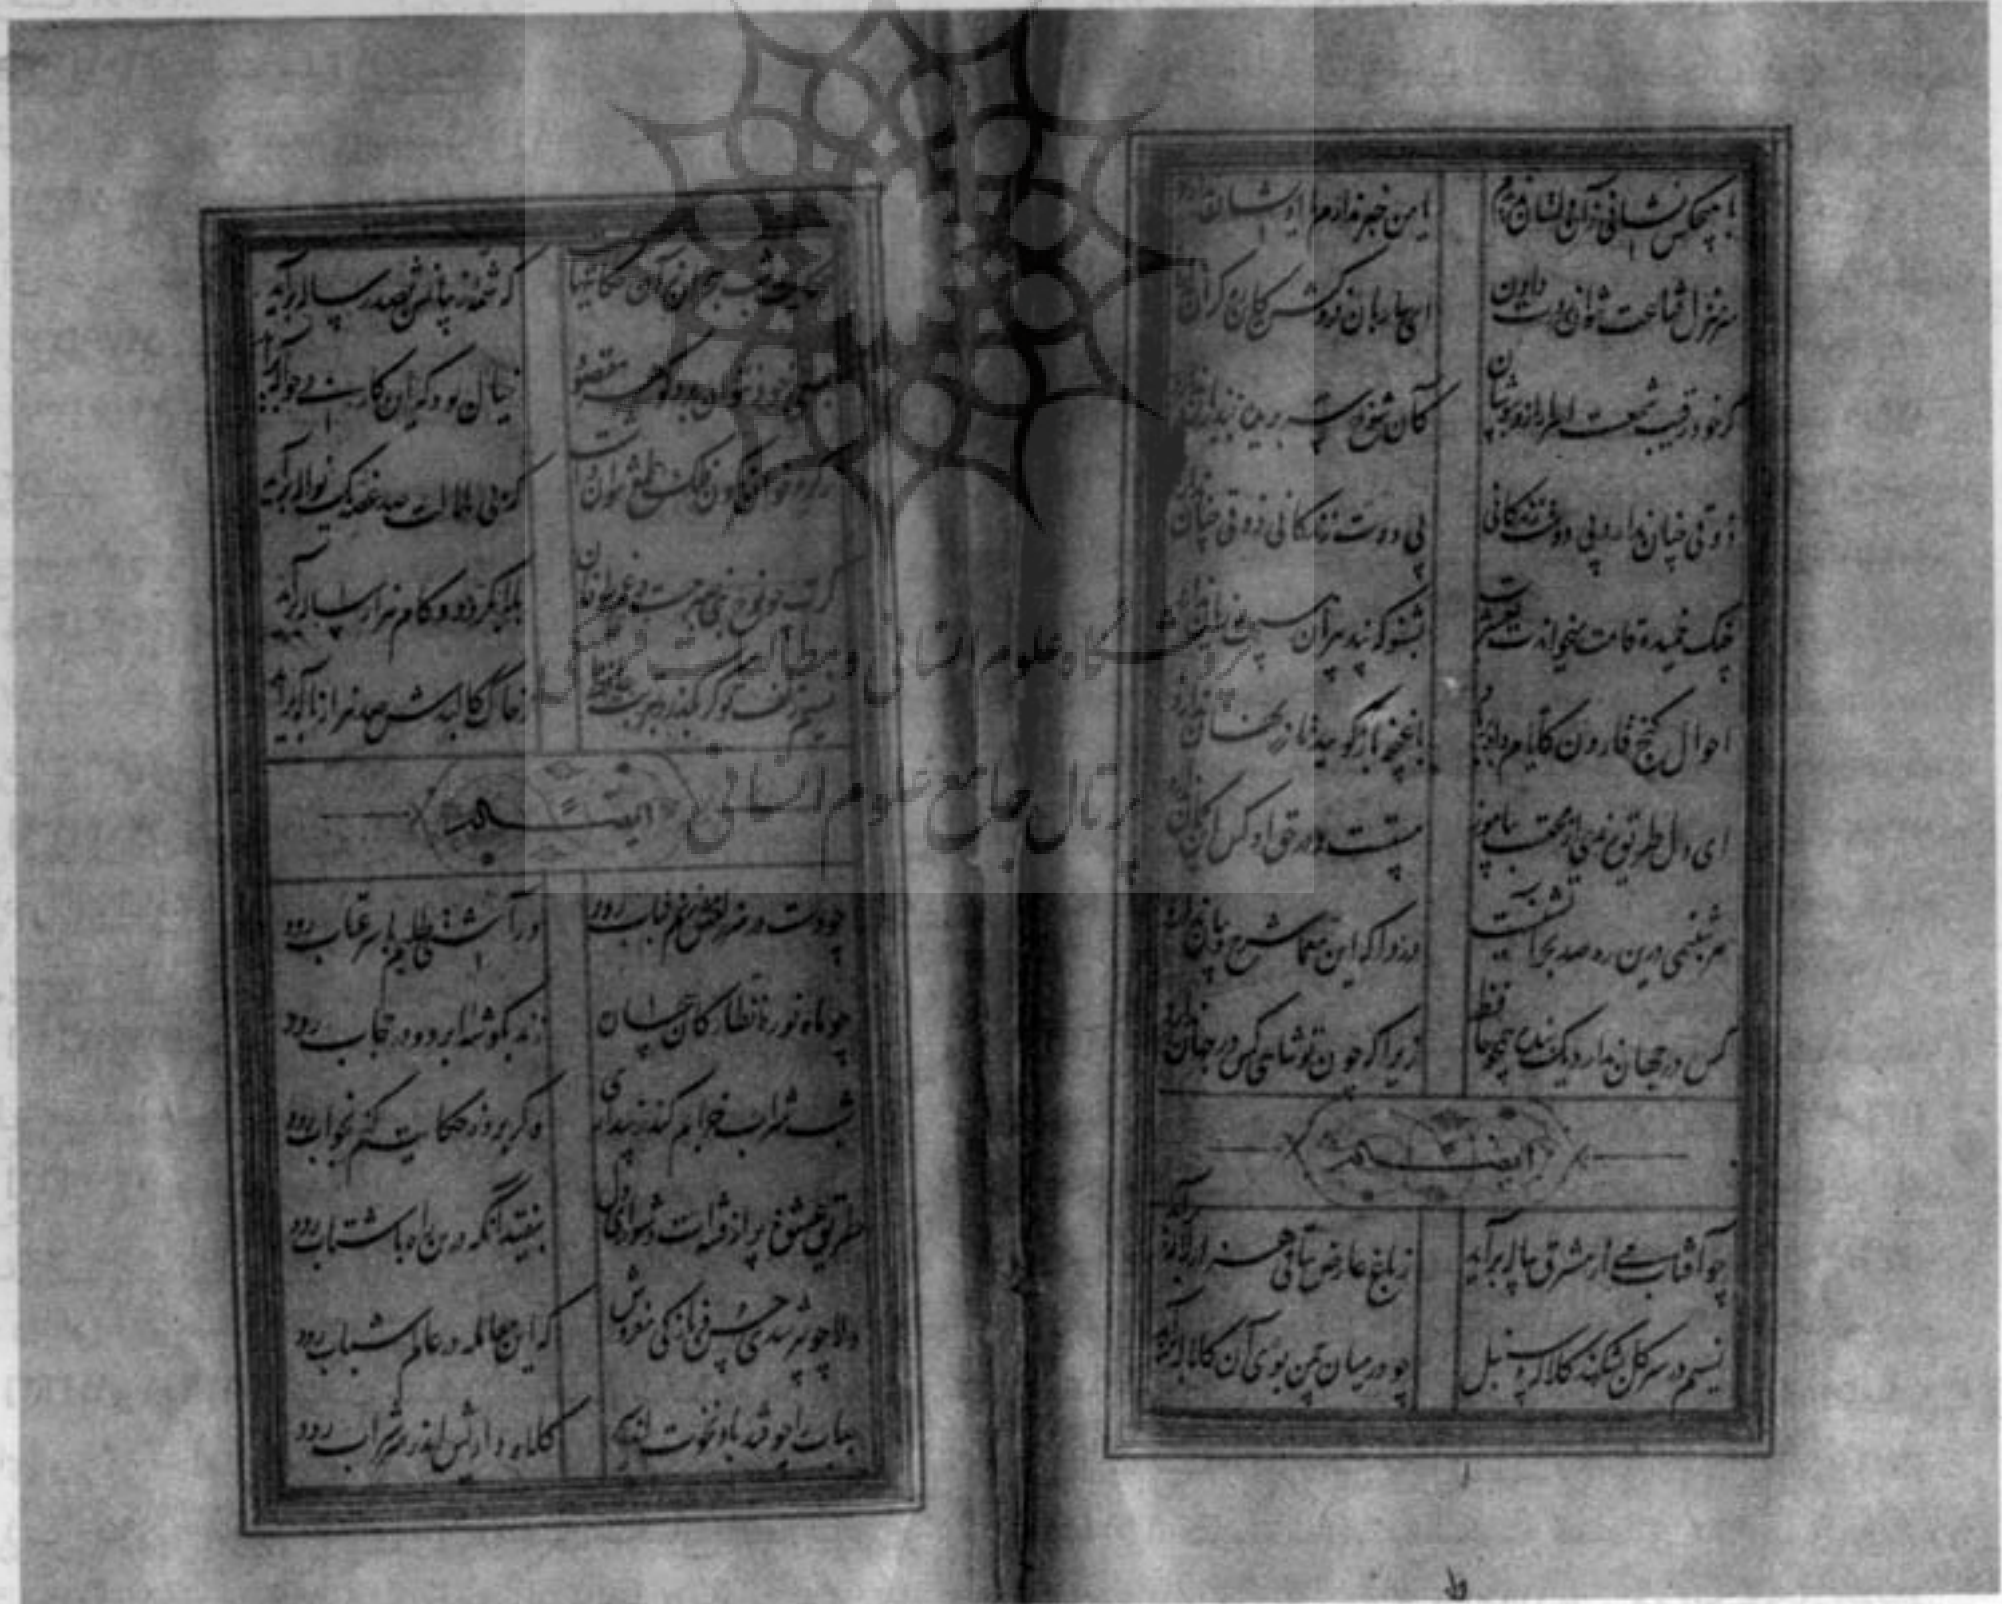 با هیچکس نشانی زان دلستان ندیدم
یا من خبر ندارم یا او نشان ندارد
سرمنزل قناعت نتوان ز دست دادن
ای ساربان فروکش کاین ره کران ندارد
گر خود رقیب شمعست اسرار ازو بپوشان
کان شوخ سر بریده بند زبان ندارد
ذوقی چنان ندارد بی دوست زندگانی
بی دوست زندگانی ذوقی چنان ندارد
چنگ خمیده قامت میخواندت بعشرت
بشنو که پند پیران هیچت زیان ندارد
احوال گنج قارون کایام داد بر باد
با غنچه باز گویید تا زر نهان ندارد
ای دل طریق رندی از محتسب بیاموز
مستست و در حق او کس این گمان ندارد
هر شبنمی درین ره صد بحر آتشینست
دردا که این معما شرح و بیان ندارد
کس در جهان ندارد یک بنده همچو حافظ
زیرا که چون تو شاهی کس در جهان ندارد
ایضا له
چو آفتاب می از مشرق پیاله برآید
ز باغ عارض ساقی هزار لاله برآید
نسیم در سر گل بشکند کلاله سنبل
چو در میان چمن بوی آن کلاله برآید
حکایت شب هجران نه آن حکایتهاست
که شمه ز بیانش بصد رساله برآید
بسعی خود نتوان برد گوهر مقصود
خیال بود که این کار بی حواله برآید
ز گرد خوان نگون فلک طمع نتوان داشت
که بی ملالت صد غصه یک نواله برآید
گرت چو نوح نبی صبر هست در غم طوفان
بلا بگردد و کام هزار ساله برآید
نسیم زلف تو گر بگذرد بتربت حافظ
ز خاک کالبدش صد هزار ناله برآید
ایضا له
چو دست در سر زلفش زنم بتاب رود
ور آشتی طلبم با سر عتاب رود
چو ماه نو ره نظارگان بیچاره
زند بگوشه ابرو و در نقاب رود
شب شراب خرابم کند ز بیداری
وگر بروز حکایت کنم بخواب رود
طریق عشق پر از فتنه است و آشوب ای دل
بیفتد آنکه درین راه با شتاب رود
دلا چو پیر شدی حسن و نازکی مفروش
که این معامله در عالم شباب رود
حباب را چو فتد باد نخوت اندر سر
کلاه داریش اندر سر شراب رود
پژوهشگاه علوم انسانی و مطالعات فرهنگی
پرتال جامع علوم انسانی